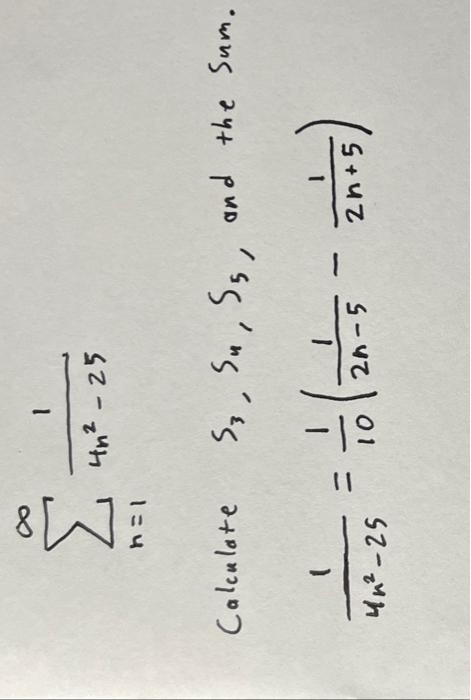 ∞
∑ 1/(4n² - 25)
n=1
Calculate S₃, S₄, S₅, and the Sum.
1/(4n²-25) = 1/10 (1/(2n-5) - 1/(2n+5))